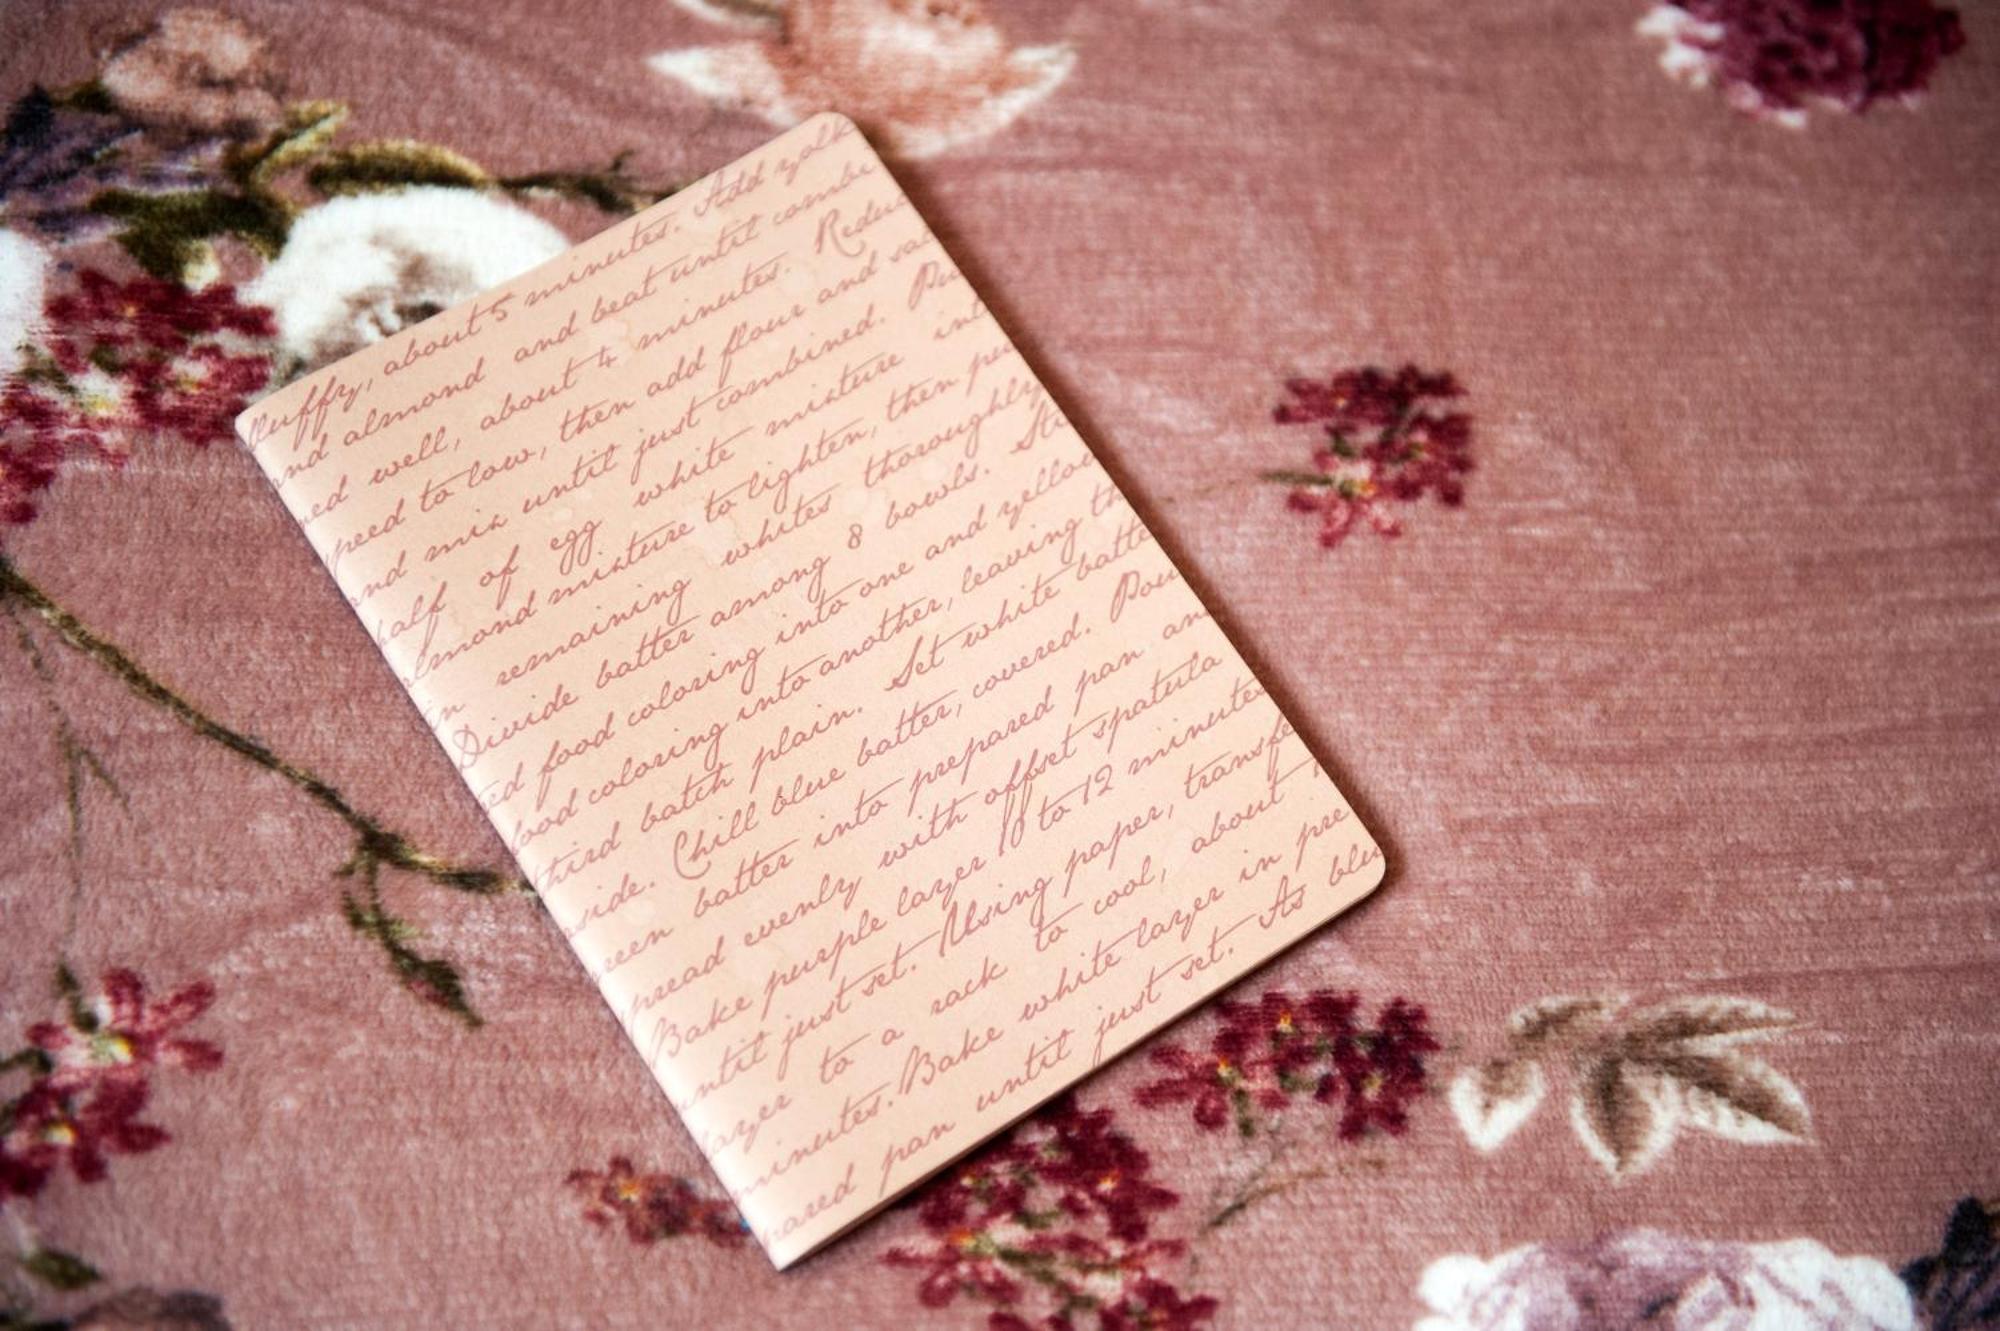 fluffy, about 5 minutes. Add yolk
nd almond and beat until combi
ned well, about 4 minutes. Redu
peed to low, then add flour and sal
and mix until just combined. Pu
half of egg white mixture int
almond mixture to lighten, then pu
in remaining whites thoroughly
Divide batter among 8 bowls. Sti
ed food coloring into one and yellow
food coloring into another, leaving th
third batch plain. Set white batte
side. Chill blue batter, covered. Pou
reen batter into prepared pan an
pread evenly with offset spatula
Bake purple layer 10 to 12 minutes
until just set. Using paper, transfe
layer to a rack to cool, about 1
minutes. Bake white layer in pre
pared pan until just set. As blu